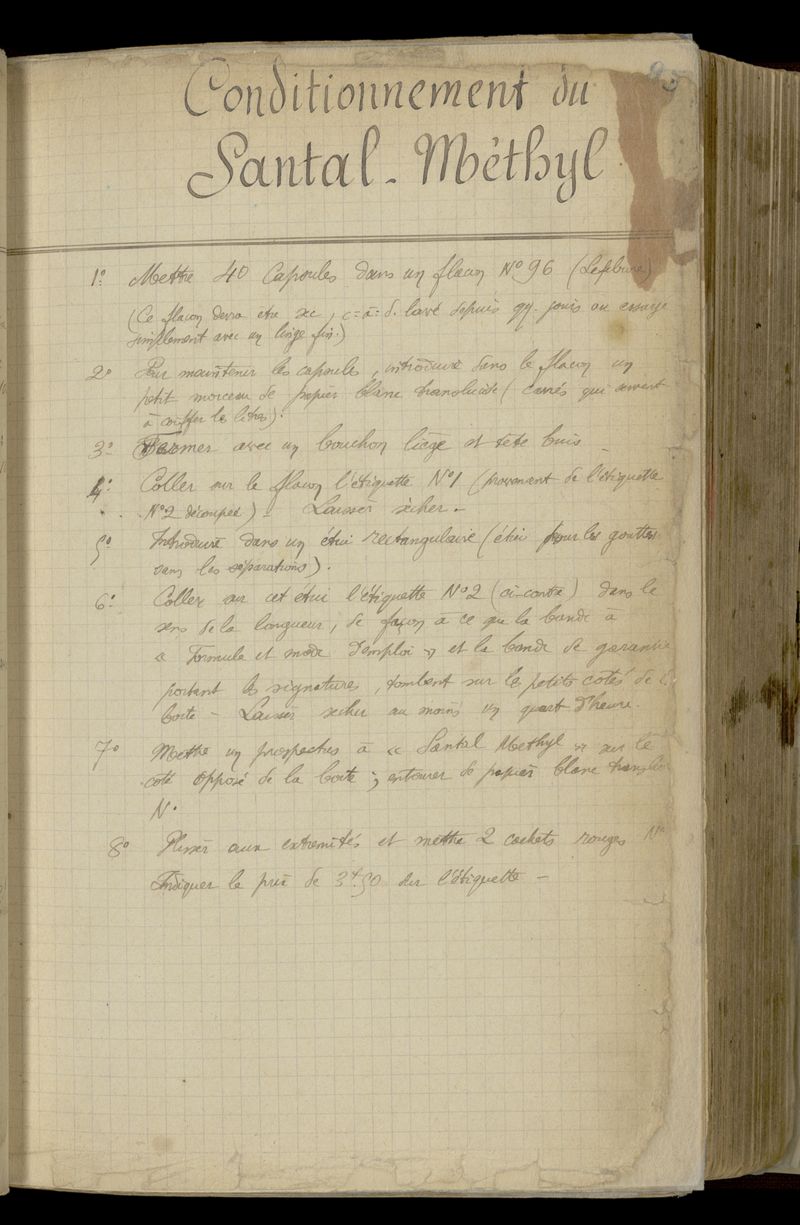 95
Conditionnement du
Santal-Méthyl
1º Mettre 40 Capsules dans un flacon Nº 96 (Lefebvre)
(Ce flacon devra être sec, c=à=d. lavé depuis qq. jours ou essuyé
simplement avec un linge fin.)
2º Pour maintenir les capsules, introduire dans le flacon un
petit morceau de papier blanc translucide (carrés qui servent
à coiffer le litres).
3º Fermer avec un bouchon liège et tête buis.
4º Coller sur le flacon l'étiquette Nº1 (provenant de l'étiquette
Nº2 découpée) - Laisser sécher -
5º Introduire dans un étui rectangulaire (étui pour les gouttes
sans les séparations).
6º Coller sur cet étui l'étiquette Nº2 (ci-contre) dans le
sens de la longueur, de façon à ce que la bande à
« Formule et mode d'emploi » et la bande de garantie
portant les signatures, tombent sur les petits cotés de
boite - Laisser sécher au moins un quart d'heure.
7º Mettre un prospectus à « Santal Methyl » sur le
coté opposé de la boite ; entourer de papier blanc
N.
8º Plisser aux extremités et mettre 2 cachets rouges Nº
Indiquer le prix de 3f.50 sur l'étiquette -